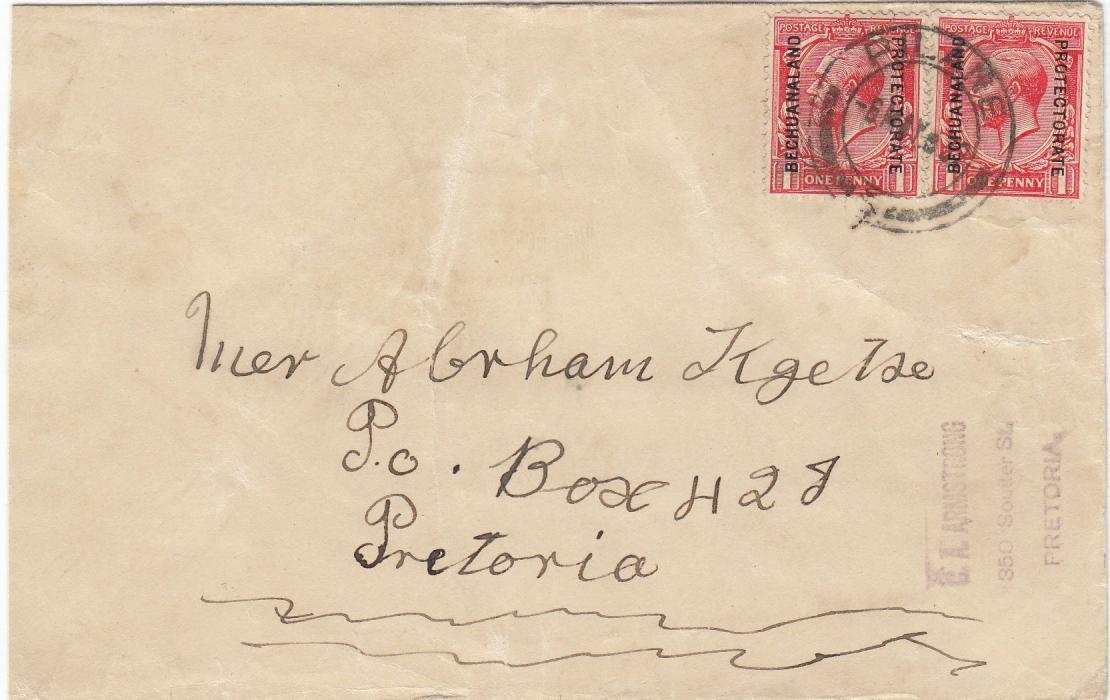 POSTAGE REVENUE POSTAGE REVENUE
BECHUANALAND PROTECTORATE BECHUANALAND PROTECTORATE
1 ONE PENNY 1 1 ONE PENNY 1
PILANE
Mer Abrham Kgetse
P.o. Box 428
Pretoria
C. A. ARMSTRONG
350 Soutter St.
PRETORIA